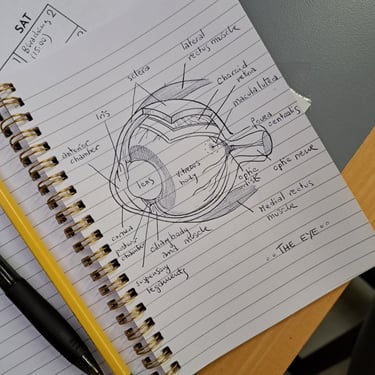 SAT
1
2
Birthday
(15:00)
lateral
rectus muscle
sclera
Choroid
retina
macula lutea
Fovea
centralis
iris
anterior
chamber
lens
vitreous
body
optic
optic nerve
cornea
chamber
ciliary body
and muscle
suspensory
ligaments
Medial rectus
muscle
THE EYE